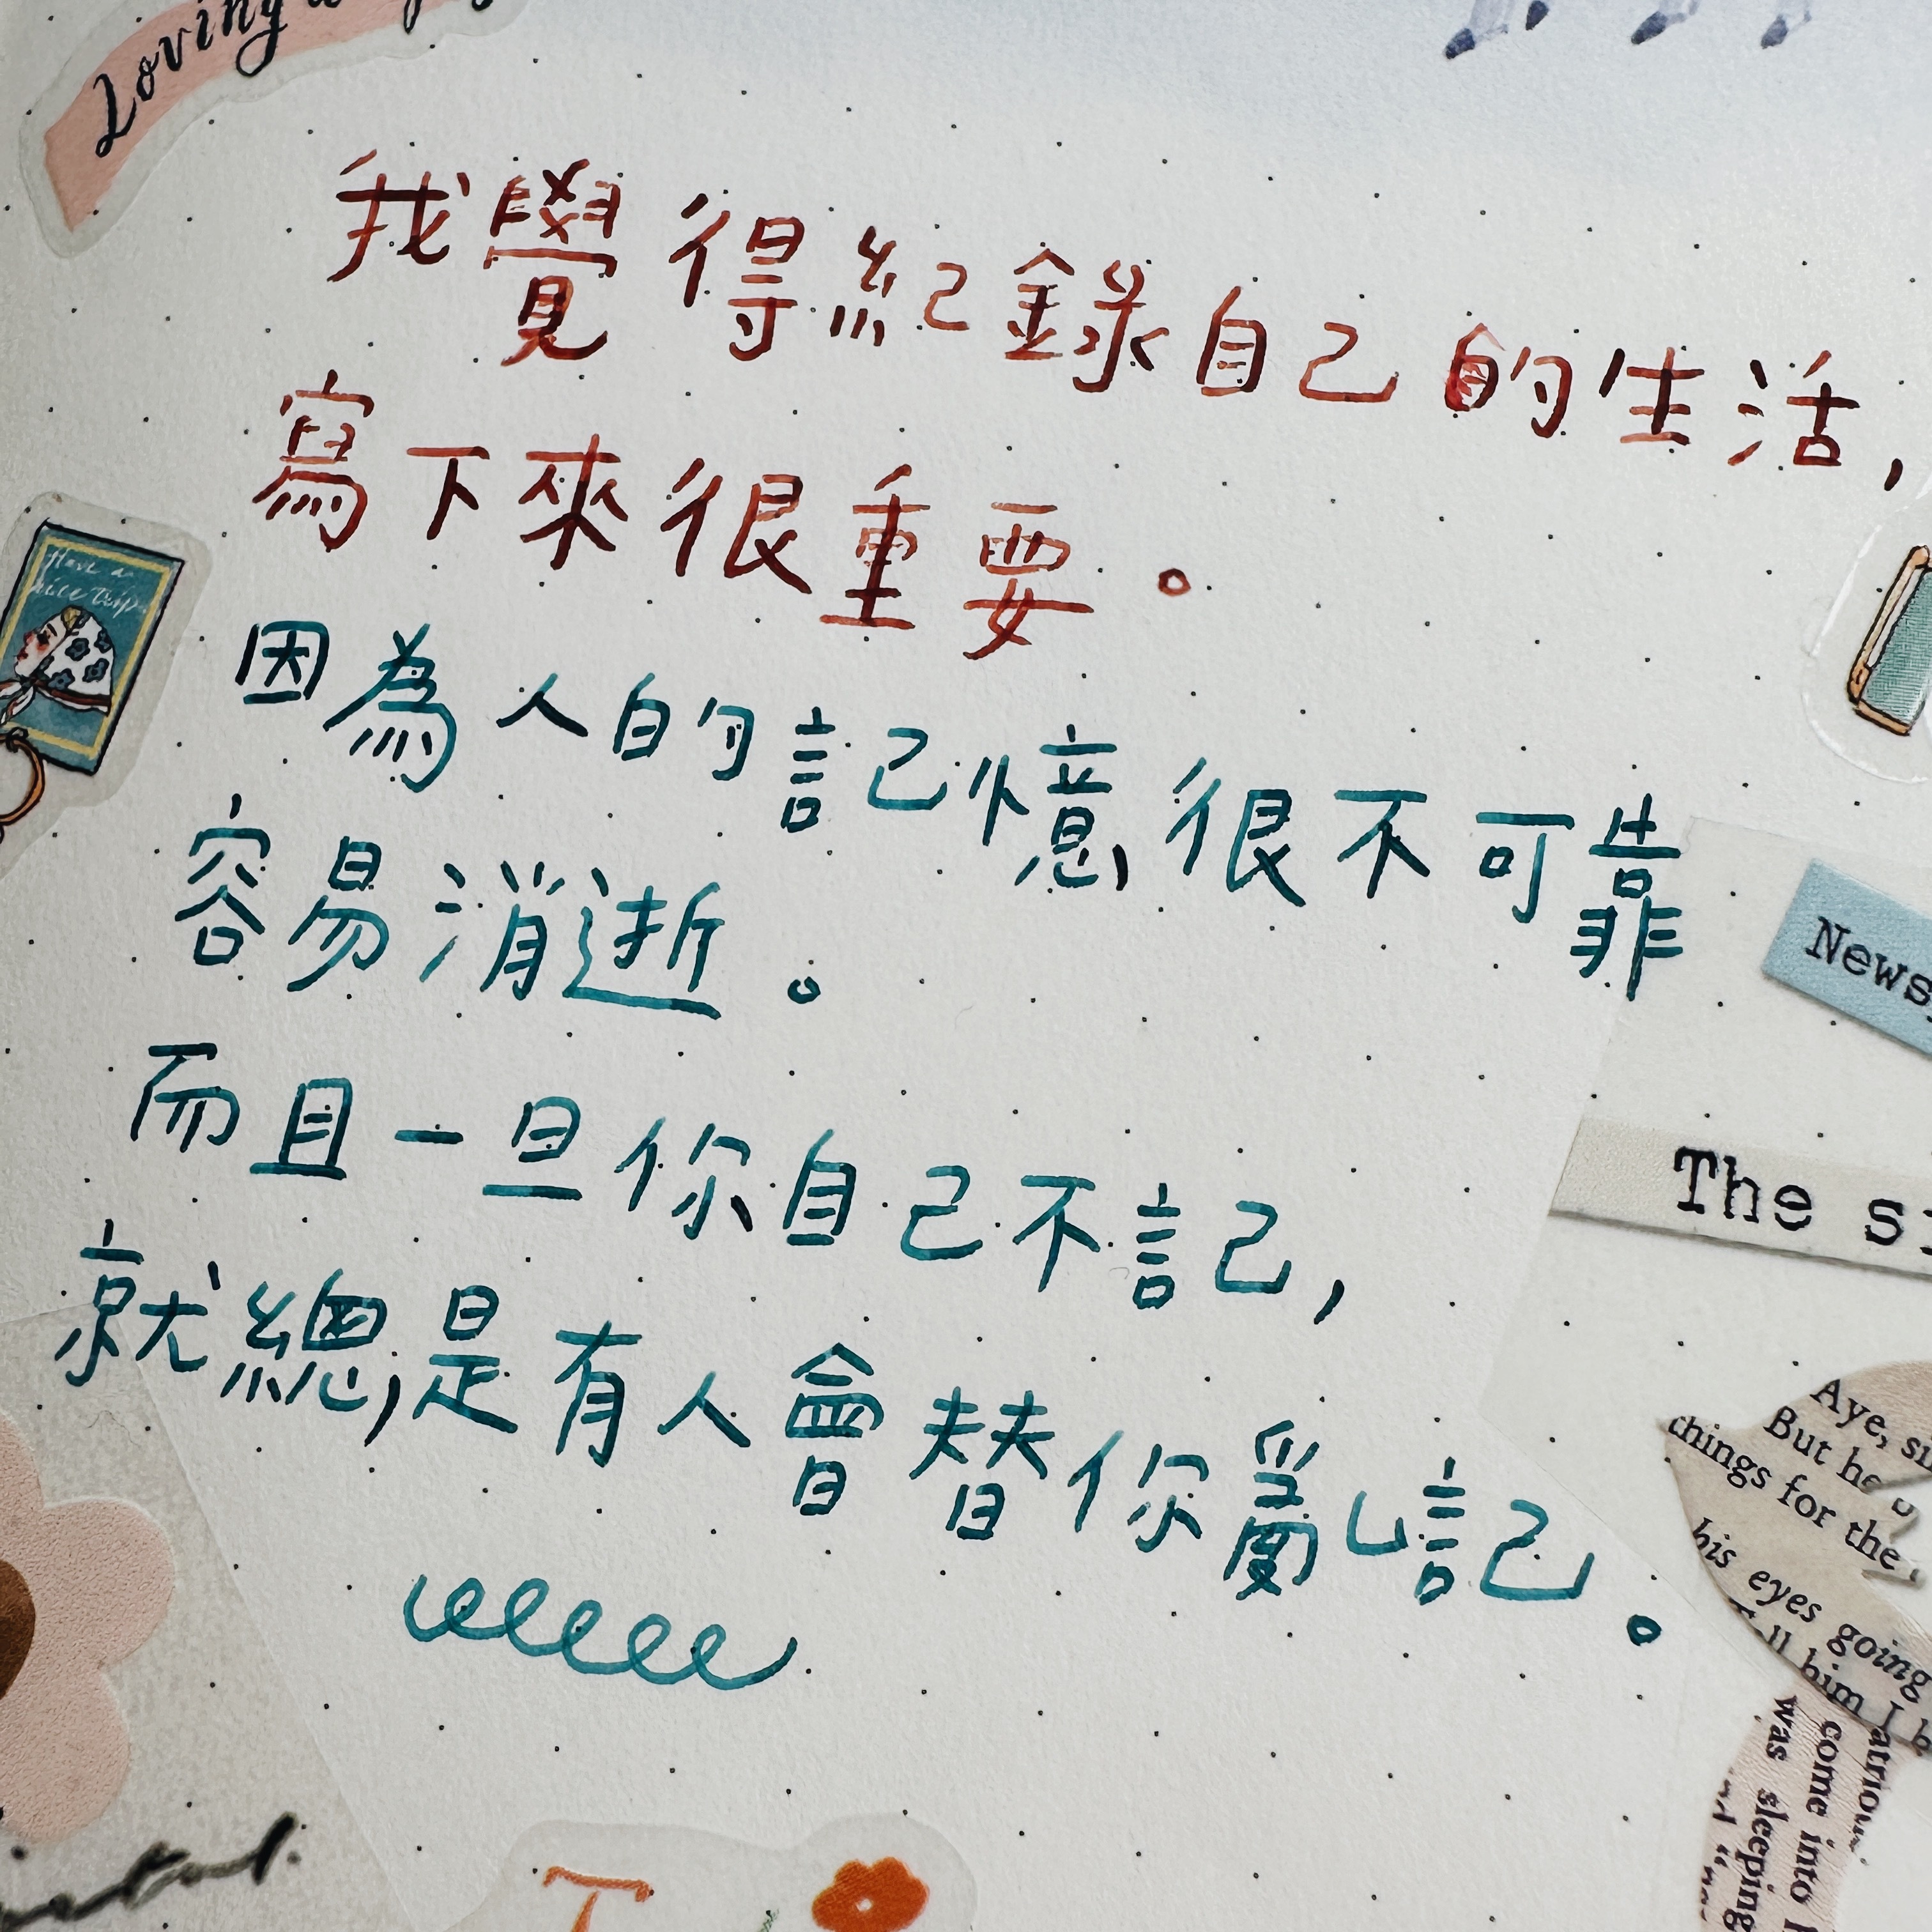 Loving
我覺得紀錄自己的生活，
寫下來很重要。
Have a
nice trip
因為人的記憶很不可靠
容易消逝。
News
而且一旦你自己不記，
The
就總是有人會替你亂記。
Aye,
But he
things for the
his eyes going
him I
was sleeping
come into